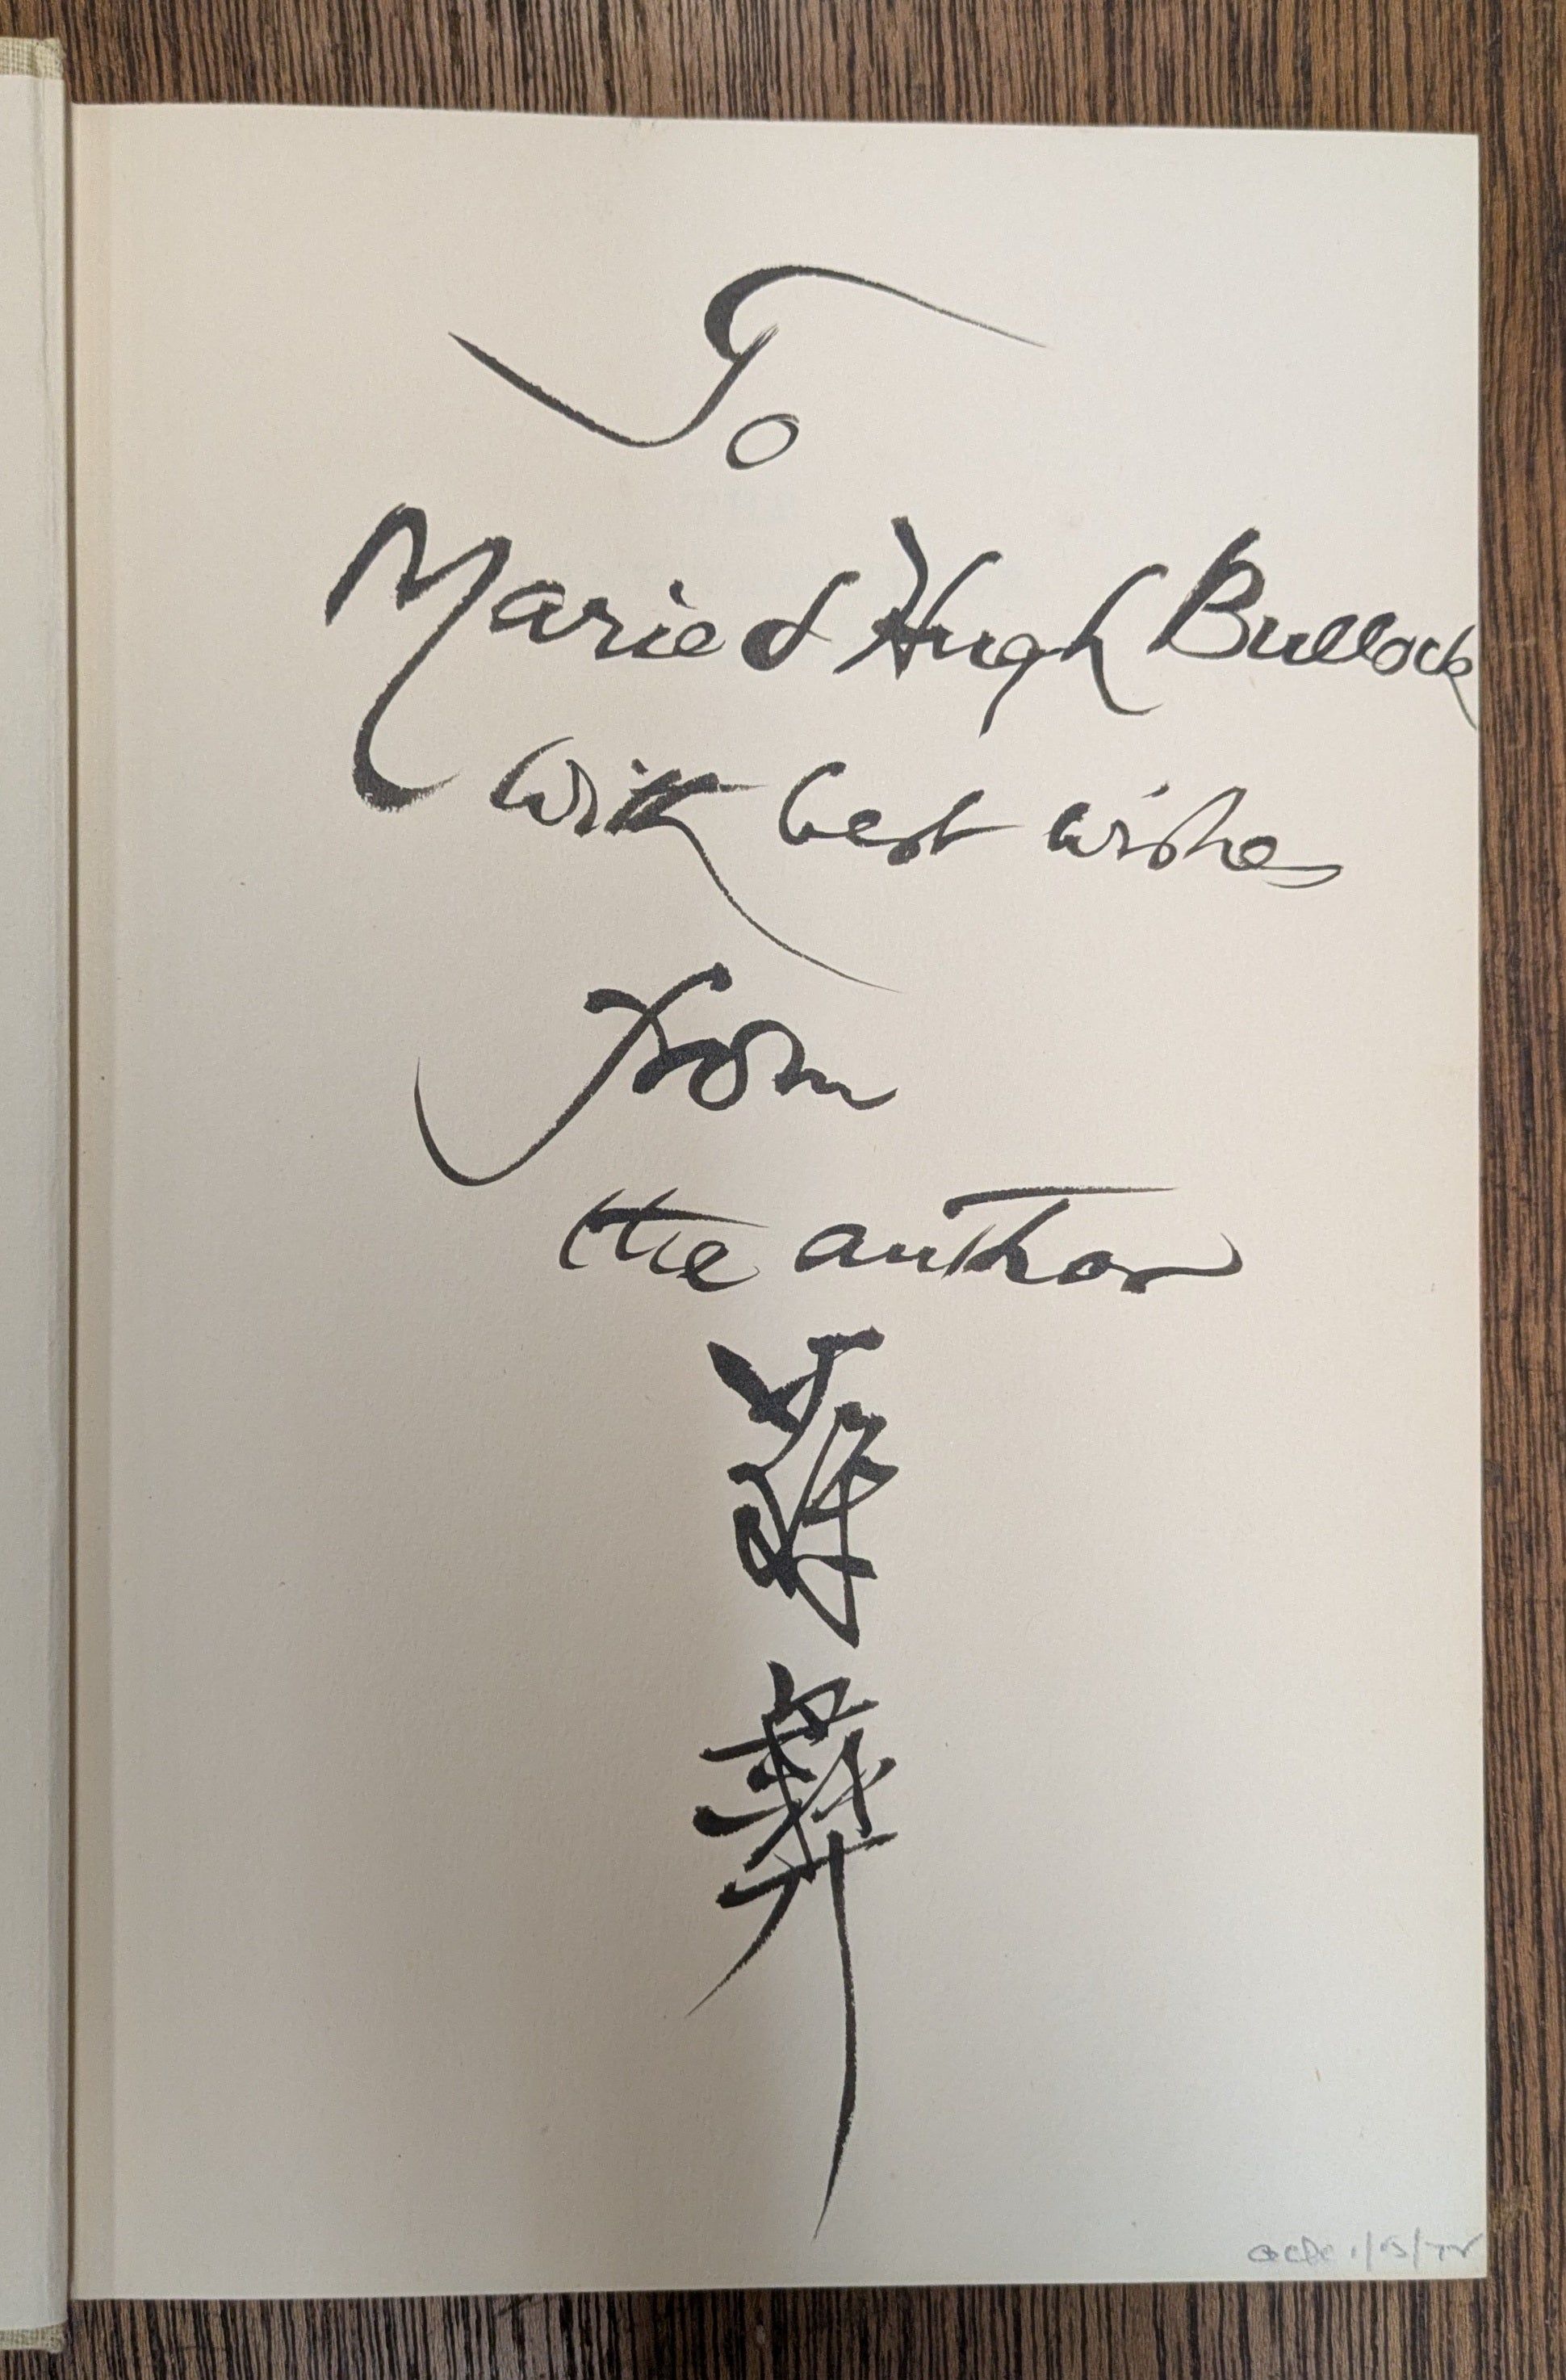 To
Marie & Hugh Bullock
with best wishes
from
the author
蔣
彝